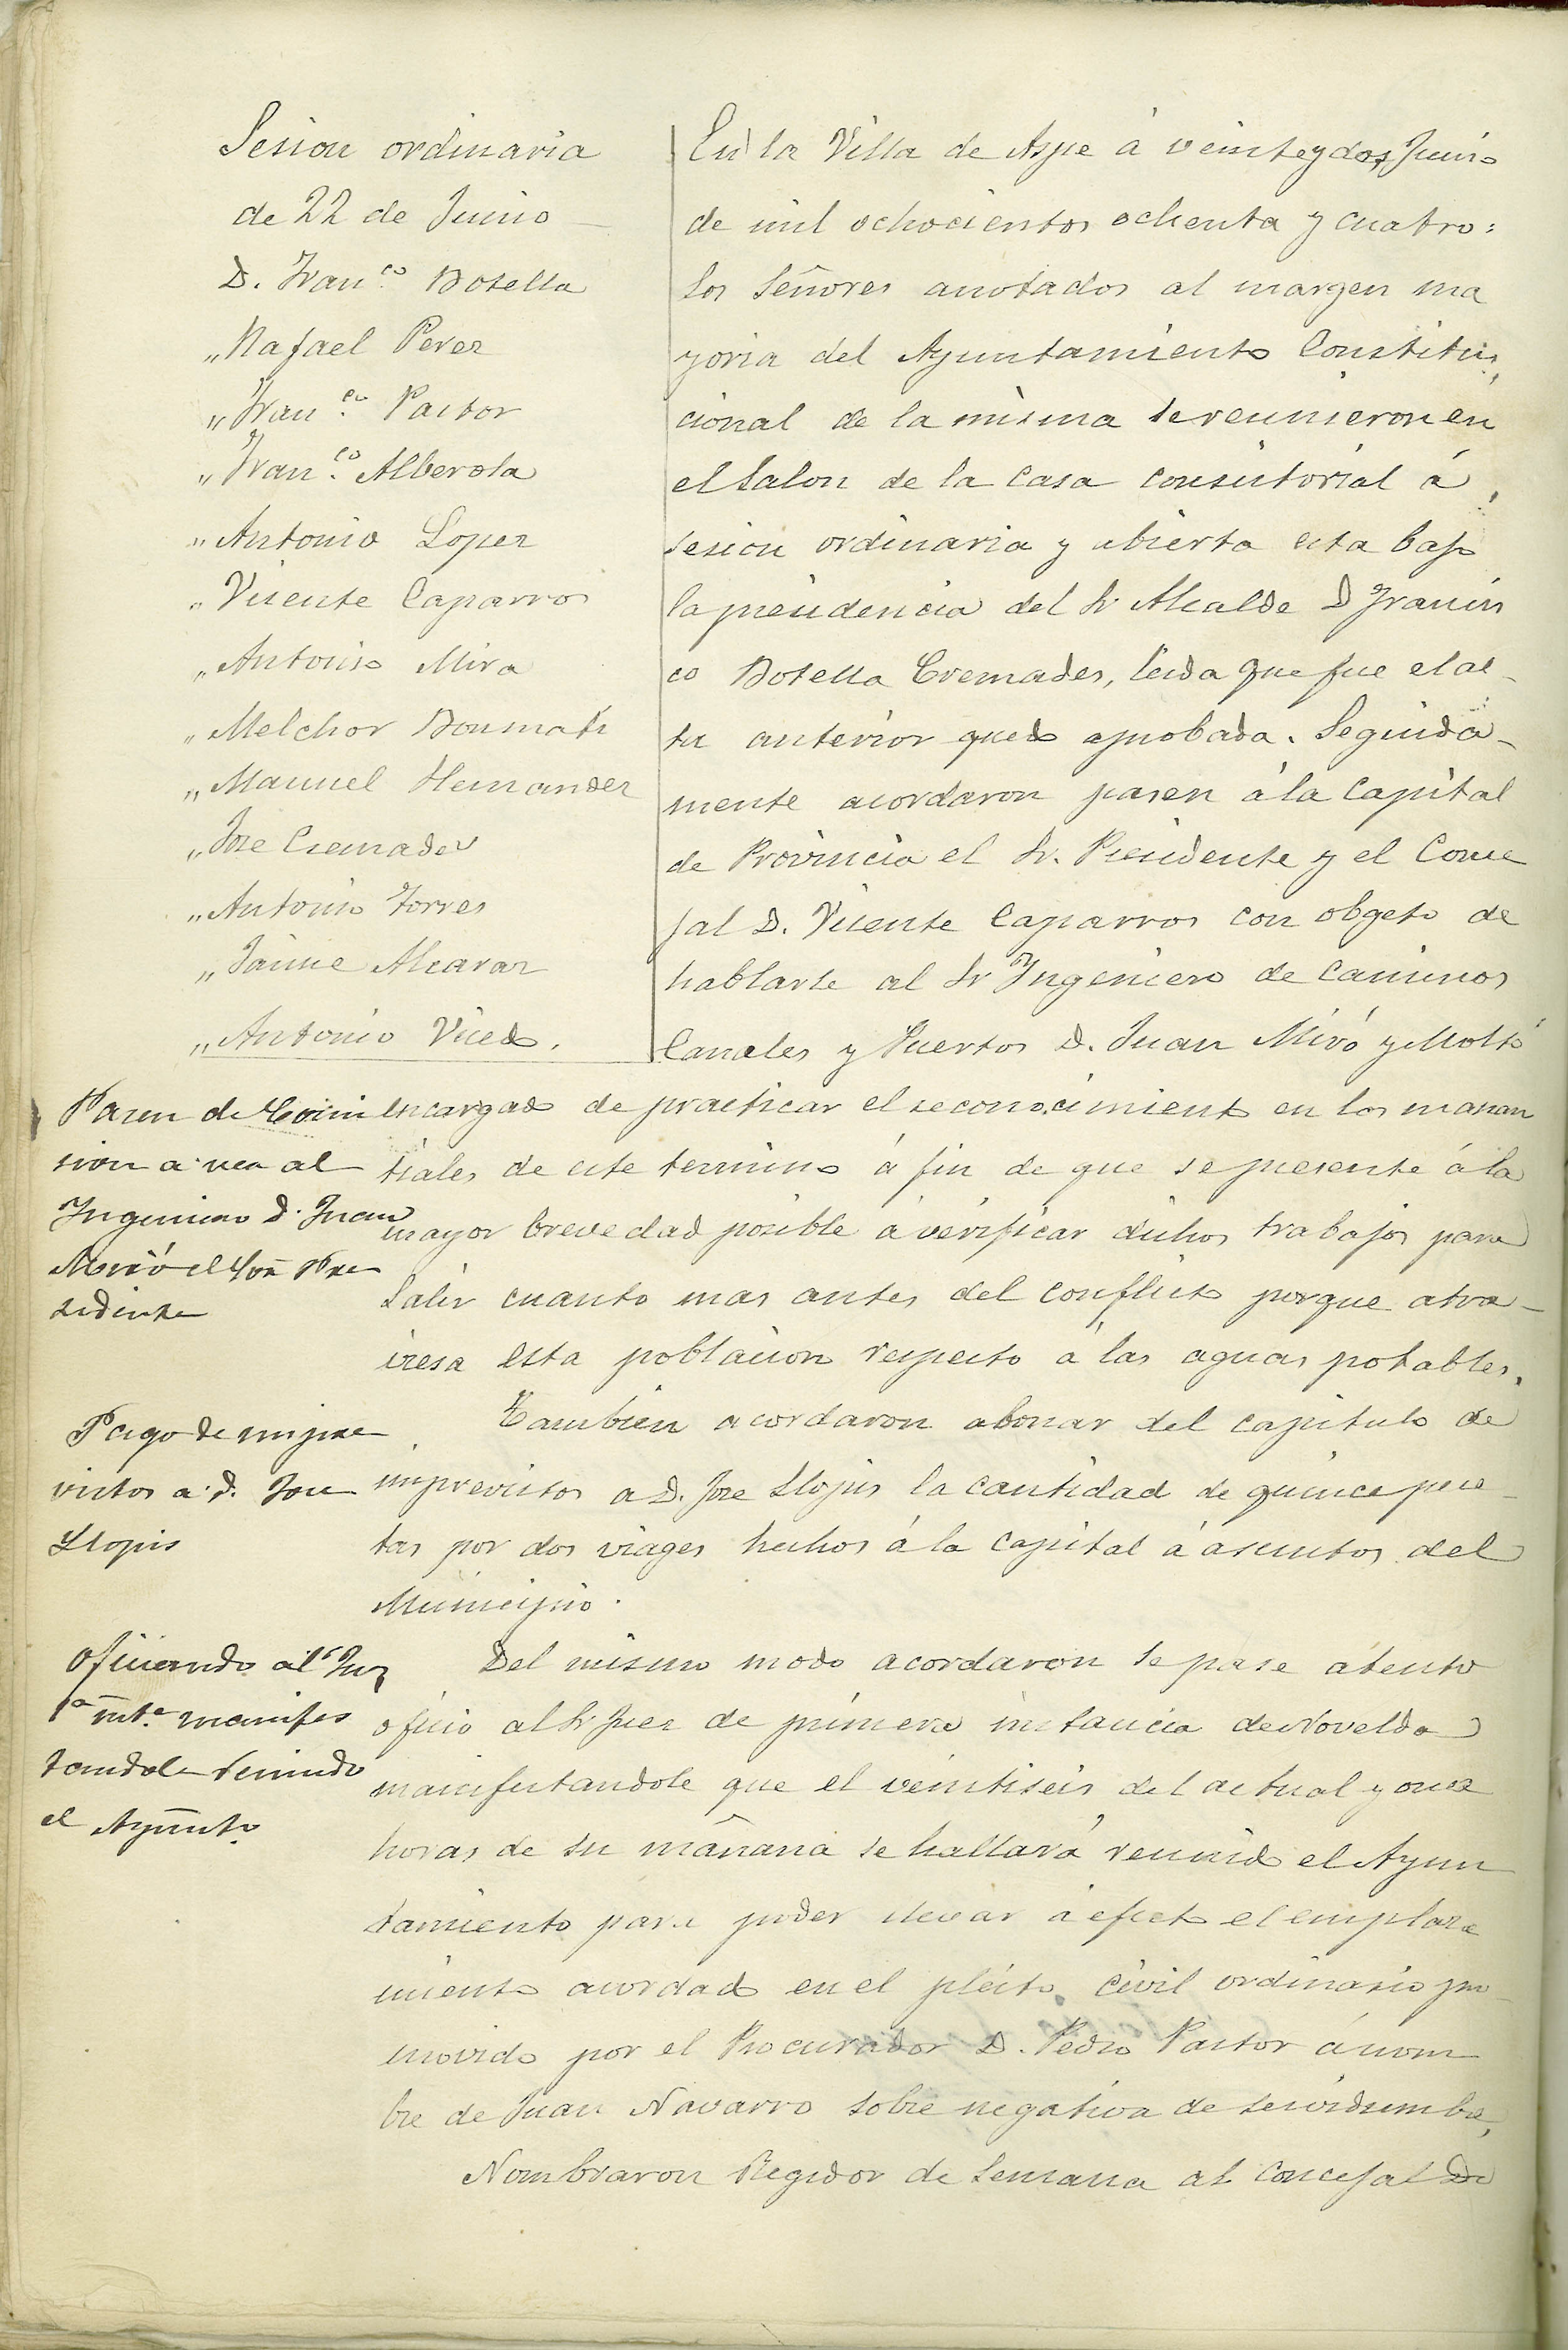 Sesion ordinaria
de 22 de Junio
D. Fran.co Botella
„ Rafael Perez
„ Fran.co Pastor
„ Fran.co Alberola
„ Antonio Lopez
„ Vicente Caparros
„ Antonio Mira
„ Melchor Bonmati
„ Manuel Hernandez
„ Jose Cremades
„ Antonio Torres
„ Jaime Alcaraz
„ Antonio Vicedo.
En la Villa de Aspe á veinteydos Junio
de mil ochocientos ochenta y cuatro:
los Señores anotados al margen ma
yoria del Ayuntamiento Constitu,
cional de la misma se reunieron en
el Salon de la Casa Consistorial á
sesion ordinaria y abierta esta bajo
la presidencia del Sr Alcalde D Francis
co Botella Cremades, leida que fue el ac-
ta anterior quedo aprobada. Seguida-
mente acordaron pasen á la Capital
de Provincia el Sr. Presidente y el Conce
jal D. Vicente Caparros con objeto de
hablarle al Sr Ingeniero de Caminos
Canales y Puertos D. Juan Miró y Moltó
encargado de practicar el reconocimiento en los manan
tiales de este termino á fin de que se presente á la
mayor brevedad posible á verificar dichos trabajos para
salir cuanto mas antes del conflicto porque atra-
viesa esta poblacion respecto á las aguas potables.
Pasen de Comi
sion a ver al
Ingeniero D. Juan
Miró el Señ Pre
sidente
Tambien acordaron abonar del capitulo de
imprevistos a D. Jose Llopis la cantidad de quince pese-
tas por dos viages hechos á la capital á asuntos del
Municipio.
Pago de impre
vistos a D. Jose
Llopis
Del mismo modo acordaron se pase atento
oficio al Sr Juez de primera instancia de Novelda
manifestandole que el veintiseis del actual y once
horas de su mañana se hallará reunido el Ayun
tamiento para poder llevar á efecto el emplaza
miento acordado en el pleito civil ordinario pro-
movido por el Procurador D. Pedro Pastor á nom
bre de Juan Navarro sobre negativa de servidumbre,
Oficiando al Juz
1ª inta manifes
tandole reunido
el Ayunto
Nombraron Regidor de Semana al Concejal Dn